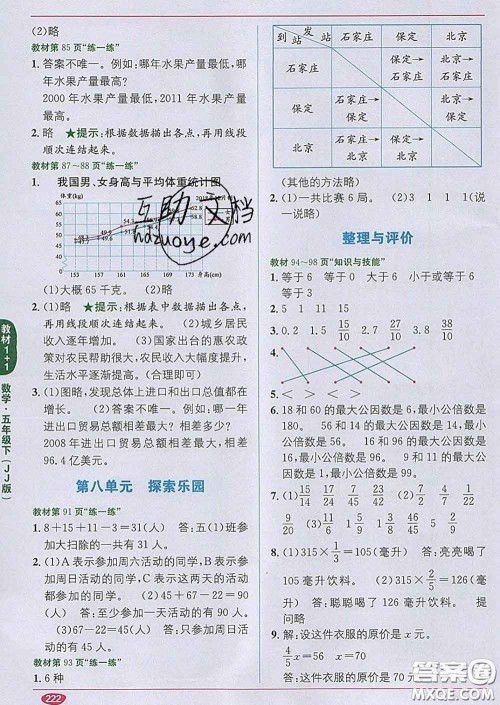 (2)略
教材第 85 页“练一练”
1. 答案不唯一。例如：哪年水果产量最低，哪年水果产量最高？
2000 年水果产量最低，2011 年水果产量最高。
2. 略 ★提示：根据数据描出各点，再用线段顺次连结起来。
教材第 87～88 页“练一练”
1. 我国男、女身高与平均体重统计图
体重(kg)
65
60
55
50
45
40
0
153 157 161 165 169 173 身高(cm)
(1)大概 65 千克。
(2)略 ★提示：根据表中数据描出各点，再用线段顺次连结起来。
2. (1)略 ★提示：根据数据描出各点，再用线段顺次连结起来。 (2)城乡居民收入逐年增加。 (3)国家出台的惠农政策对农民帮助很大，农民收入大幅度提升，生活水平逐渐提高。(合理即可)
3. (1)图略，发现总体上进口和出口总值都有增加。 (2)例如：哪一年进出口贸易总额相差最大？相差多少？
2008 年进出口贸易总额相差最大，相差 96.4 亿美元。
第八单元 探索乐园
教材第 91 页“练一练”
1. 8+15+11-3=31(人) 答：五(1)班参加大扫除的一共有 31 人。
2. (1)A 表示参加周六活动的同学，B 表示参加周日活动的同学，C 表示这两天的活动都参加的同学。 (2)45+67-22=90(人) 答：至少参加一天活动的有 90 人。
(3)67-22=45(人) 答：只参加周日活动的有 45 人。
教材第 93 页“练一练”
1. 6 种
222
教材1+1
数学·五年级下(JJ版)
发站 到站 石家庄 保定 北京
石家庄 保定→石家庄 北京→石家庄
保定 石家庄→保定 北京→保定
北京 石家庄→北京 保定→北京
(其他的方法略)
2. (1)一共比赛 6 局。 (2)3 1 1 1(说一说略)
整理与评价
教材 94～98 页“知识与技能”
1. 等于 6 等于 0 大于 6 小于或等于 6
2. > > < = > >
3. 0.2 1.5 15/10 2.7 0.38 38/100
4.
5. < > < > > <
6. 18 和 60 的最大公因数是 6，最小公倍数是 180。 56 和 16 的最大公因数是 8，最小公倍数是 112。
8. (1)315×1/3=105(毫升) 答：亮亮喝了 105 毫升饮料。 (2)315×2/5=126(毫升) 答：聪聪喝了 126 毫升饮料。
9. 解：设这件衣服的原价是 x 元。
4/5x=56 x=70
答：这件衣服的原价是 70 元。
互助文档
hdzuoye.com
答案圈
MXQE.COM